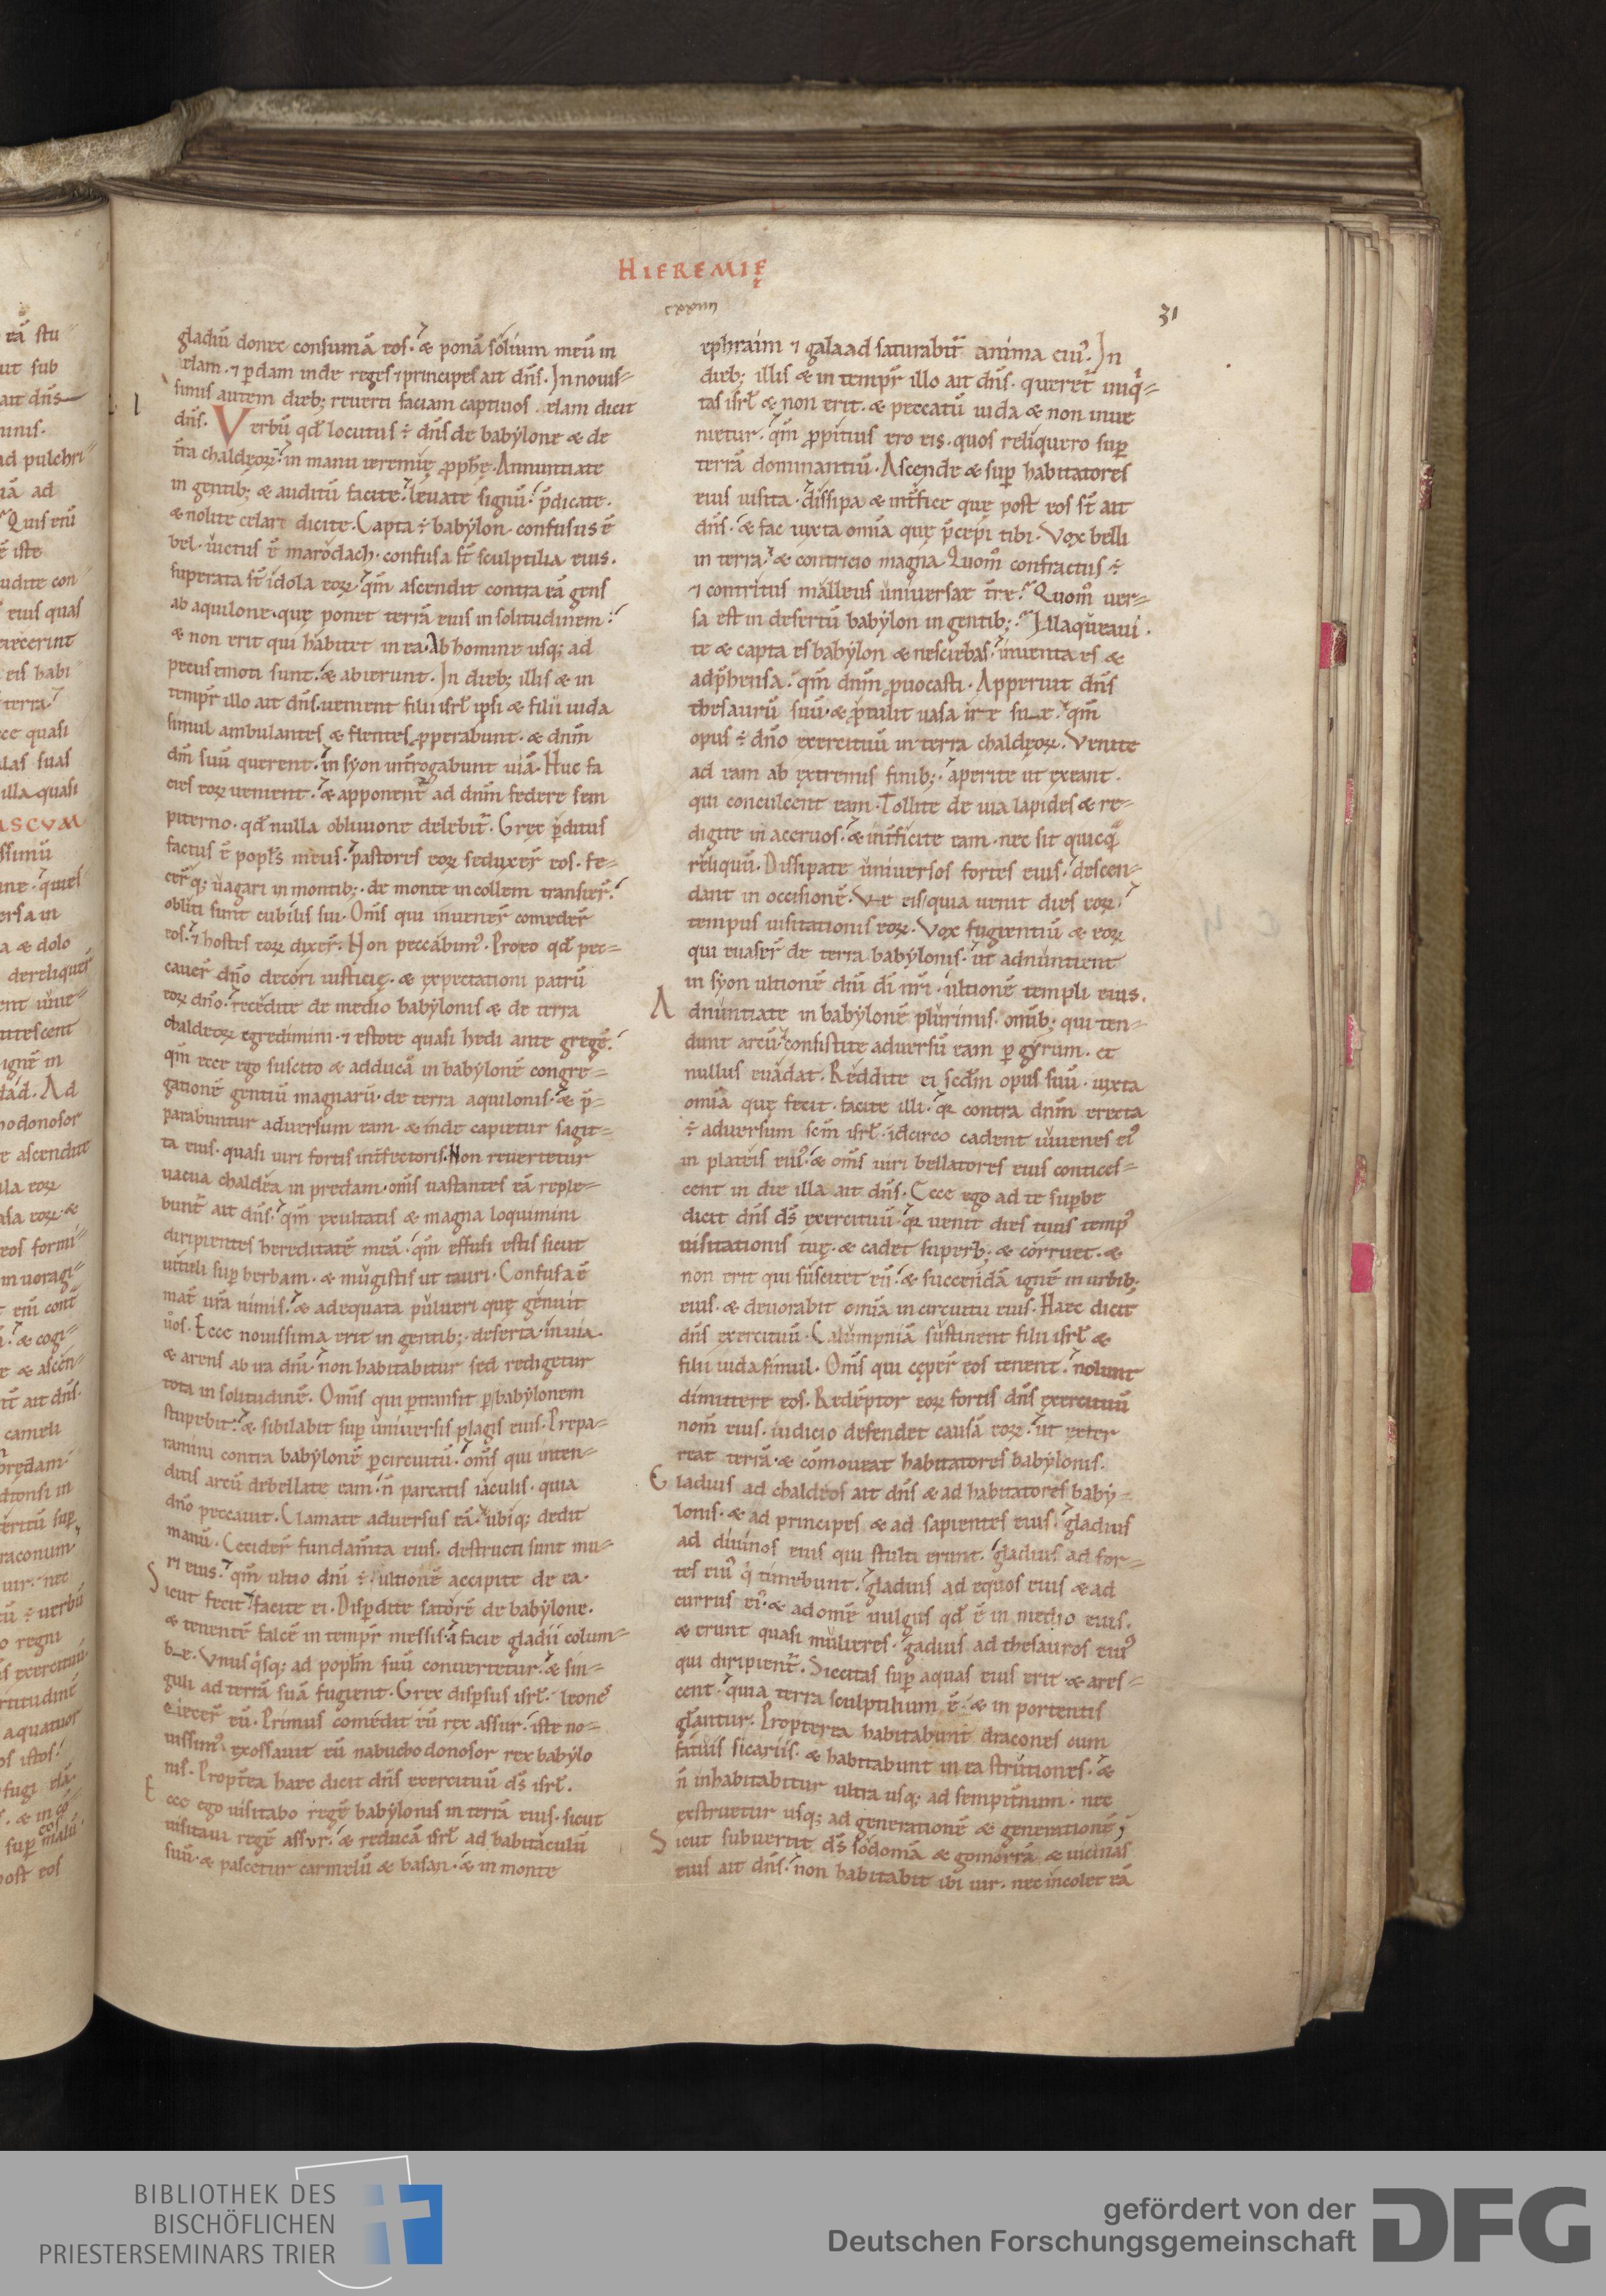 HIEREMIĘ
cxxiiii
31
gladiū donec consumā eos. & ponā solium meū in
elam. ⁊ ꝑdam inde reges ⁊ principes ait dn̄s. In nouis=
simis autem dieb; reuerti faciam captiuos elam dicit
dn̄s. Verbū qd̄ locutus ÷ dn̄s de babylone & de
tr̄a chaldeoꝝ in manu ieremię ꝓph̄ę. Annuntiate
in gentib; & auditū facite. leuate signū. p̄dicate.
& nolite celare dicite. Capta ÷ babylon. confusus ē
bel. uictus ē marodach. confusa st̄ sculptilia eius.
superata st̄ idola eoꝝ. qm̄ ascendit contra eā gens
ab aquilone. que ponet terrā eius in solitudinem.
& non erit qui habitet in ea. Ab homine usq; ad
pecus emoti sunt. & abierunt. In dieb; illis & in
tempr̄ illo ait dn̄s. uenient filii isrł ipsi & filii iuda
simul ambulantes & flentes ꝓperabunt. & dn̄m
dm̄ suū querent. in syon int̄rogabunt uiā. Huc fa
cies eoꝝ uenient. & apponent̄ ad dn̄m federe sem
piterno. qd̄ nulla obliuione delebit̄. Grex ꝑditus
factus ē popl̄s meus. pastores eoꝝ seduxer̄ eos. fe=
cer̄q; uagari in montib;. de monte in collem transier̄.
obliti sunt cubilis sui. Om̄s qui inuener̄ comeder̄
eos. ⁊ hostes eoꝝ dixer̄. Non peccabim᾽. Proeo qd̄ pec=
cauer̄ dn̄o decori iusticię. & expectationi patrū
eoꝝ dn̄o. recedite de medio babylonis & de terra
chaldeoꝝ egredimini. ⁊ estote quasi hedi ante gregē.
qm̄ ecce ego suscito & adducā in babylonē congre=
gationē gentiū magnarū. de terra aquilonis. & p̄=
parabuntur aduersum eam. & inde capietur sagit=
ta eius. quasi uiri fortis int̄fectoris. Non reuertetur
uacua chaldea in predam. om̄s uastantes eā reple=
bunt̄ ait dn̄s. qm̄ exultatis & magna loquimini
diripientes hereditatē meā. qm̄ effusi estis sicut
uituli suꝑ herbam. & mugistis ut tauri. Confusa ē
mat̄ ur̄a nimis. & adequata pulueri que genuit
uos. Ecce nouissima erit in gentib;. deserta. inuia.
& arens ab ira dn̄i. non habitabitur sed redigetur
tota in solitudinē. Om̄s qui ꝑtransit ꝑ babylonem
stupebit. & sibilabit suꝑ uniuersis plagis eius. Prepa=
ramini contra babylonē ꝑcircuitū. om̄s qui inten=
ditis arcū debellate eam. n̄ parcatis iaculis. quia
dn̄o peccauit. Clamate aduersus eā. ubiq; dedit
manū. Cecider̄ fundam̄ta eius. destructi sunt mu=
ri eius. qm̄ ultio dn̄i ÷. ultionē accipite de ea.
Sicut fecit facite ei. Disꝑdite satorē de babylone.
& tenentē falcē in tempr̄ messis. a facie gladii colum=
bæ. Vnusq̇sq; ad popl̄m suū conuertetur. & sin=
guli ad terrā suā fugient. Grex disꝑsus isrł. leones
eiecer̄ eū. Primus comedit eū rex assur. iste no=
uissim᾽ exossauit eū nabuchodonosor rex babylo
nis. Propt̄ea haec dicit dn̄s exercituū ds̄ isrł.
Ecce ego uisitabo regē babylonis in terrā eius. sicut
uisitaui regē assur. & reducā isrł ad habitaculū
suū. & pascetur carmelū & basan. & in monte
ephraim ⁊ galaad saturabit̄ anima ei᾽. In
dieb; illis & in tempr̄ illo ait dn̄s. queret̄ iniq̇=
tas isrł & non erit. & peccatū iuda & non inue
nietur. qm̄ ꝓpitius ero eis. quos reliquero suꝑ
terrā dominantiū. Ascende & suꝑ habitatores
eius uisita. dissipa & int̄fice que post eos st̄ ait
dn̄s. & fac iuxta omīa que p̄cepi tibi. Vox belli
in terra. & contricio magna. Quom̊ confractus ÷
⁊ contritus malleus uniuersae tr̄e. Quom̊ uer=
sa est in desertū babylon in gentib;. Illaqueaui.
te & capta es babylon & nesciebas. inuenta es &
adp̄hensa. qm̄ dn̄m ꝓuocasti. Apperuit dn̄s
thesaurū suū. & ꝓtulit uasa iræ suæ. qm̄
opus ÷ dn̄o exercituū in terra chaldeoꝝ. Venite
ad eam ab extremis finib;. aperite ut exeant.
qui conculcent eam. Tollite de uia lapides & re=
digite in aceruos. & int̄ficite eam. nec sit quicq̄
reliquū. Dissipate uniuersos fortes eius. descen=
dant in occisionē. Væ eis quia uenit dies eoꝝ.
tempus uisitationis eoꝝ. Vox fugientiū & eoꝝ
qui euaser̄ de terra babylonis. ut adnuntient
in syon ultionē dn̄i dī nr̄i. ultionē templi eius.
Adnuntiate in babylonē plurimis. omīb; qui ten=
dunt arcū. consistite aduersū eam ꝑ gyrum. et
nullus euadat. Reddite ei scd̄m opus suū. iuxta
omīa que fecit. facite illi. qr̄ contra dn̄m erecta
÷ aduersum scm̄ isrł. idcirco cadent iuuenes ei᾽
in plateis ei᾽. & om̄s uiri bellatores eius contices=
cent in die illa ait dn̄s. Ecce ego ad te suꝑbe
dicit dn̄s ds̄ exercituū. qr̄ uenit dies tuus temp᾽
uisitationis tue. & cadet superb; & corruet. &
non erit qui suscitet eū. & succendā ignē in urbib;
eius. & deuorabit omīa in circuitu eius. Haec dicit
dn̄s exercituū. Calumpniā sustinent filii isrł &
filii iuda simul. Om̄s qui ceper̄ eos tenent. nolunt
dimittere eos. Redēptor eoꝝ fortis dn̄s exercituū
nom̄ eius. iudicio defendet causā eoꝝ. ut exter
reat terrā. & cōmoueat habitatores babylonis.
Gladius ad chaldeos ait dn̄s & ad habitatores baby=
lonis. & ad principes & ad sapientes eius. gladius
ad diuinos eius qui stulti erunt. gladius ad for=
tes ei᾽ q̇ timebunt. gladius ad equos eius & ad
currus ei᾽. & ad omē uulgus qd̄ ē in medio eius.
& erunt quasi mulieres. gadius ad thesauros ei᾽
qui diripient̄. Siccitas suꝑ aquas eius erit. & ares=
cent. quia terra sculptilium ē. & in portentis
gl̄antur. Propterea habitabunt dracones cum
fatuis sicariis. & habitabunt in ea strutiones. &
n̄ inhabitabitur ultra usq; ad sempit̄num. nec
exstruetur usq; ad generationē & generationē,
Sicut subuertit ds̄ sodomā & gomorrā & uicinas
eius ait dn̄s. non habitabit ibi uir. nec incolet eā
BIBLIOTHEK DES
BISCHÖFLICHEN
PRIESTERSEMINARS TRIER
gefördert von der
Deutschen Forschungsgemeinschaft
DFG